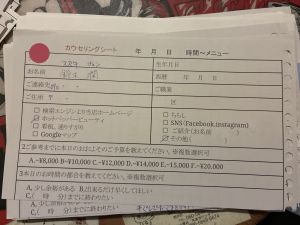 カウセリングシート 年 月 日 時間〜メニュー
お名前 生年月日
西暦 年 月 日
ご連絡先 ご職業
ご住所 〒 区
□検索エンジンより当店ホームページ □ちらし
☑ホットペッパービューティ □SNS(Facebook,instagram)
□看板、通りすがり □ご紹介(お名前 )
□Googleマップ ☑その他(
2.ご参考までに本日のおおよそのご予算を教えてください。※複数選可
A.~¥8,000 B~¥10,000 C.~¥12,000 D.~¥14,000 E.~15,000 F.~¥20.000
3.本日のお時間の都合を教えてください。※複数選択可
A, 少し余裕がある B.出来るだけ早くしてほしい
C,( 時 分)までに終わりたい
A, 少し余裕がある
C,( 時 分)までに終わりたい